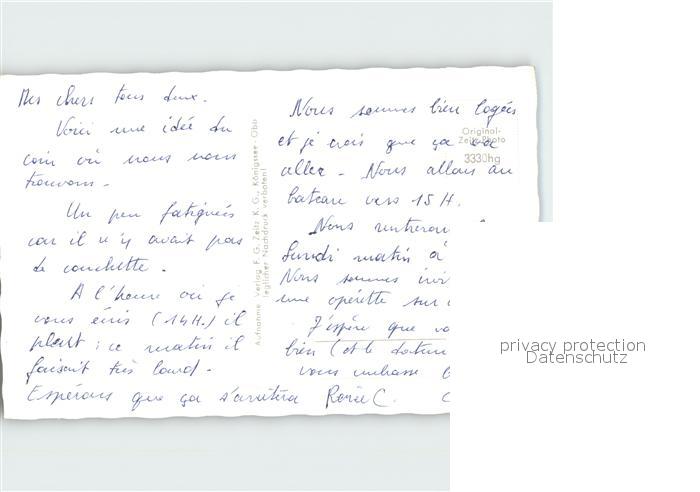 Mes chers tous deux.
Voici une idée du
coin où nous nous
trouvons -
Un peu fatiguées
car il n'y avait pas
de couchette.
A l'heure où je
vous écris (14H.) il
pleut ; ce matin il
faisait très lourd -
Espérons que ça s'arrêtera
Nous sommes bien logées
et je crois que ça va
aller - Nous allons au
bateau vers 15H.
Nous
Lundi matin à
Nous sommes
une opérette sur
J'espère que
bien (et le
vous embrasse
Renée C.
Original-
Zeitz-Photo
3330hg
Aufnahme Verlag F. G. Zeitz K. G., Königssee - Obb
(jeglicher Nachdruck verboten)
privacy protection
Datenschutz